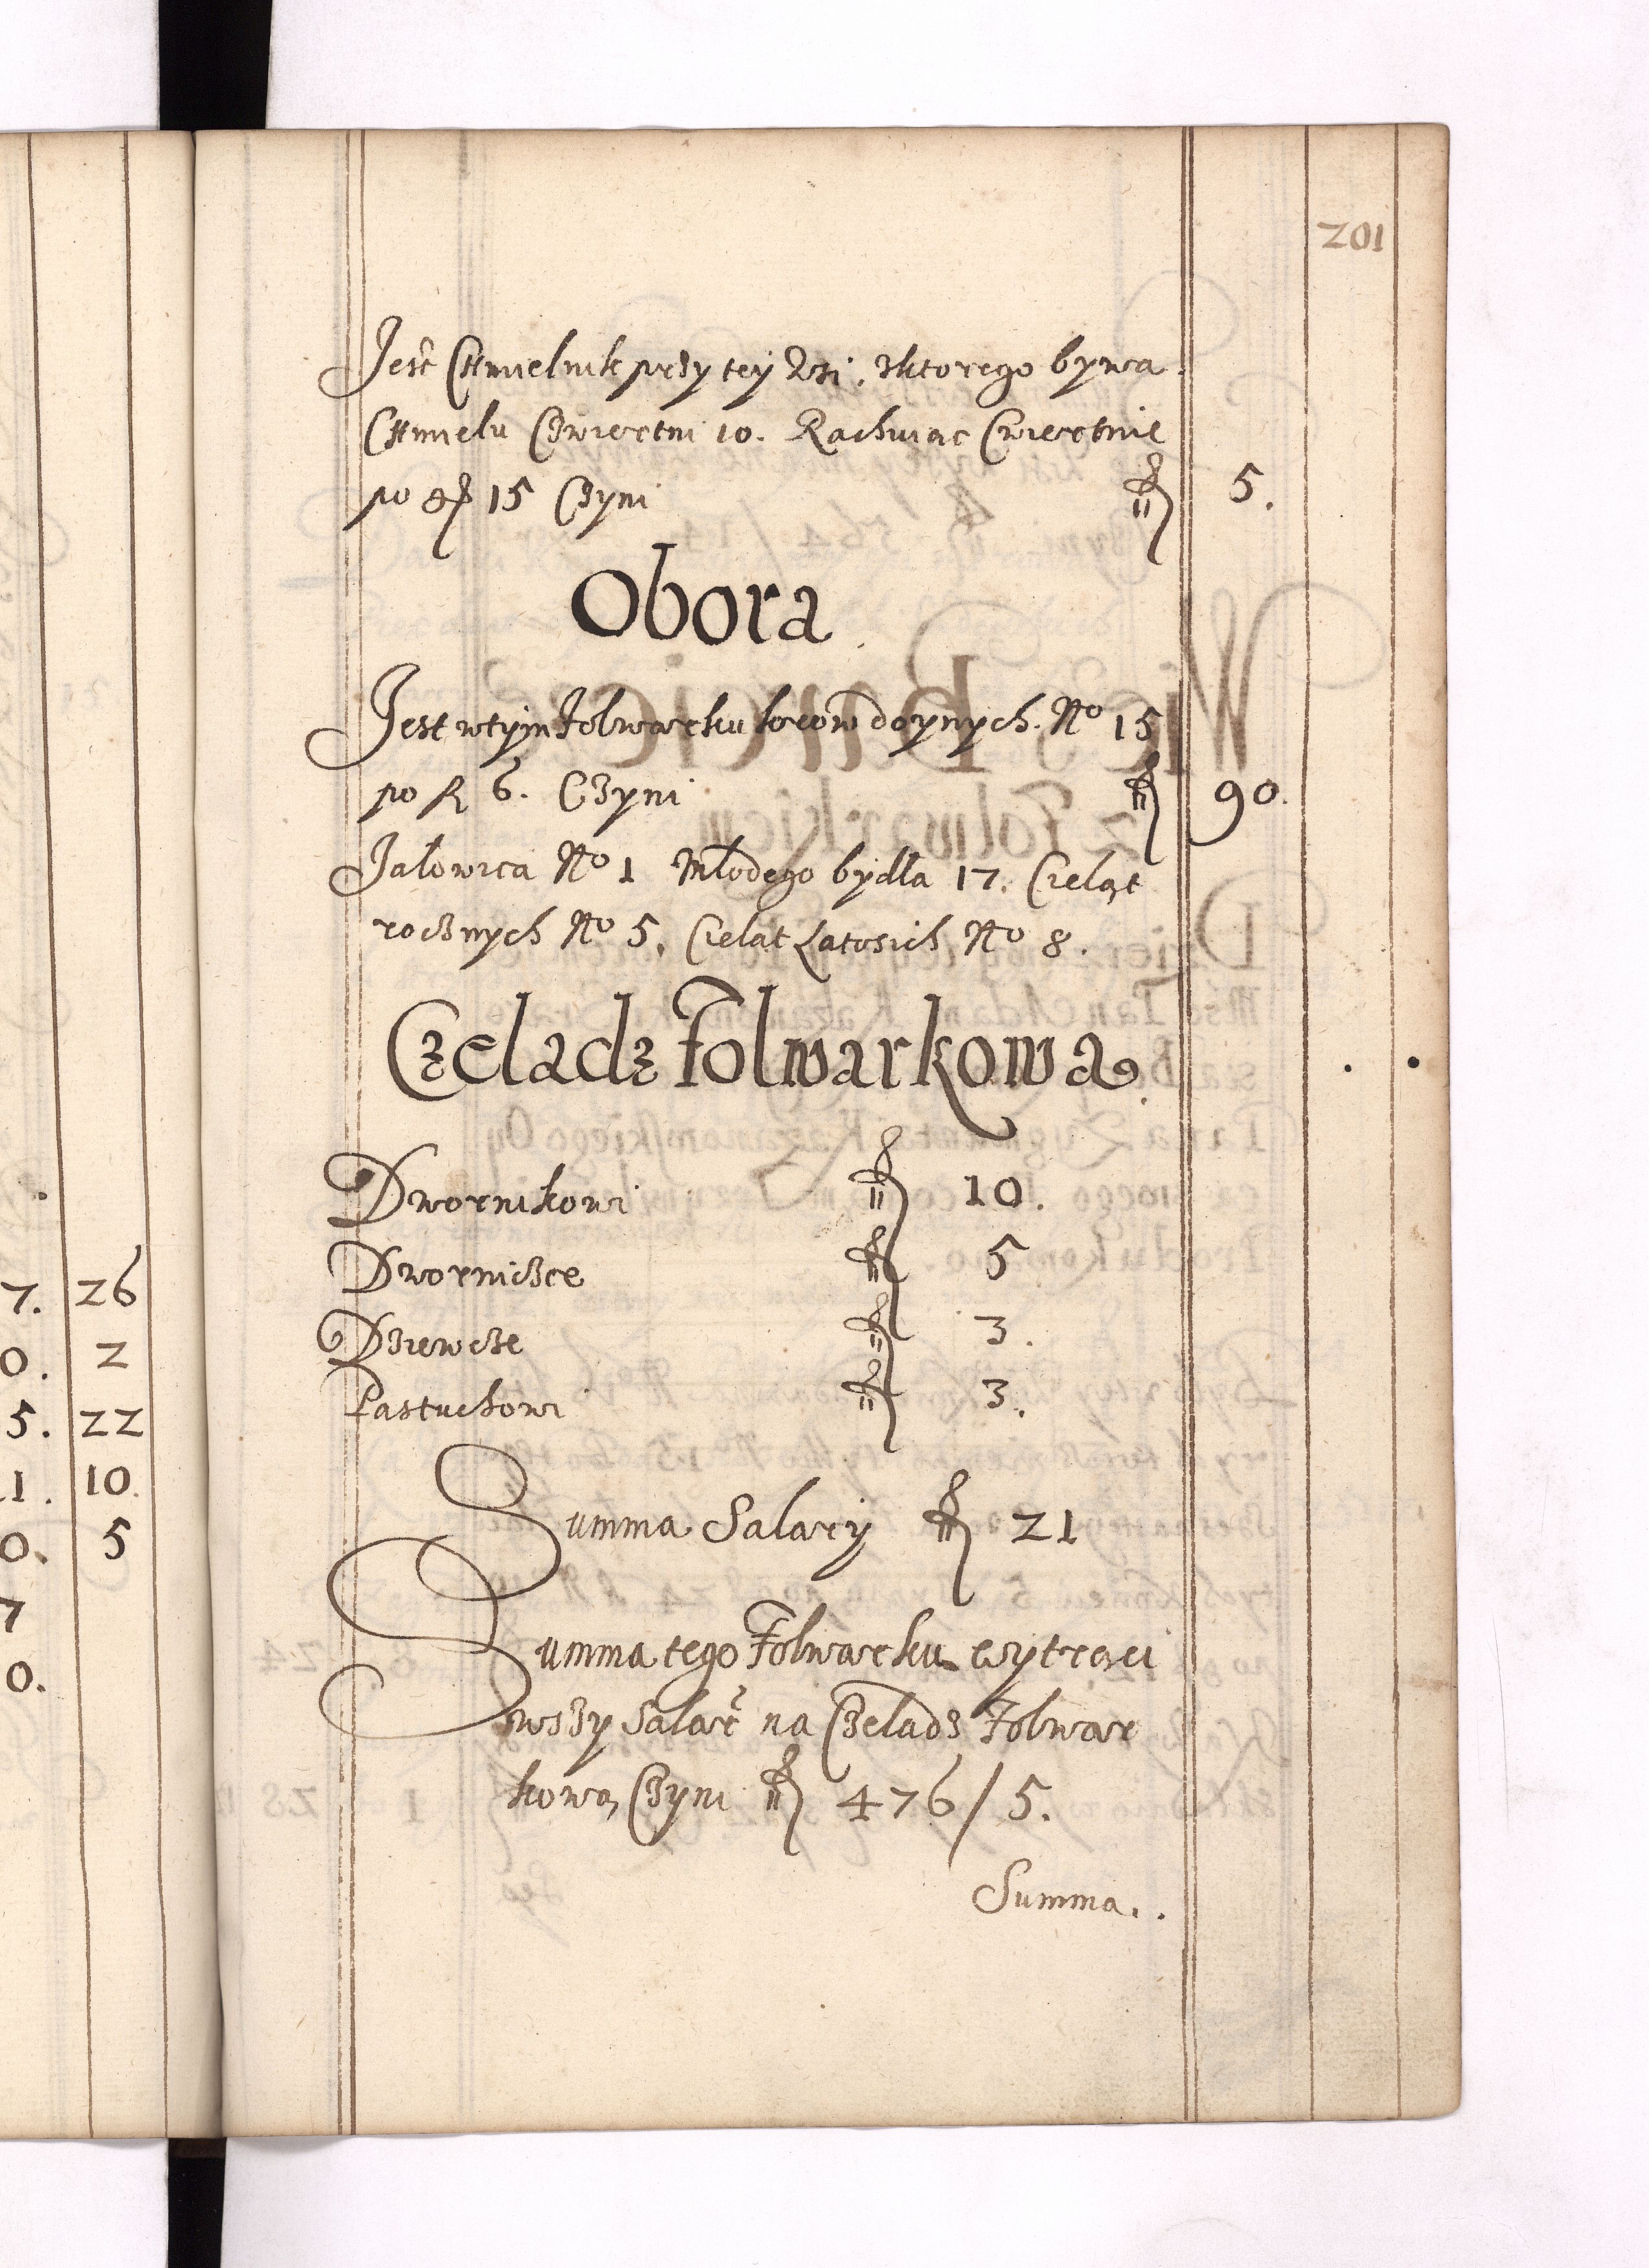 7. 26
0. 2
5. 22
1. 10.
0. 5
7
0.
Jest Chmielnik przy tey Wsi, zktorego bywa
Chmielu Czwiertni 10. Rachuiąc Cwiertnie
po gr 15 Czyni fl 5.
Obora
Jest wtym folwarku krow doynych. No 15
po fl 6. Czyni fl 90.
Jałowica No 1 Młodego bydła 17. Cieląt
rocznych No 5. Cieląt Latosich No 8.
Czeladz Folwarkowa
Dwornikowi fl 10.
Dworniczce fl 5
Dziewcze fl 3.
Pastuchowi fl 3.
Summa Salary fl 21
Summa tego Folwarku wytrąci
wszy Salar na Czeladz Folwar
kową Czyni fl 476/5.
Summa..